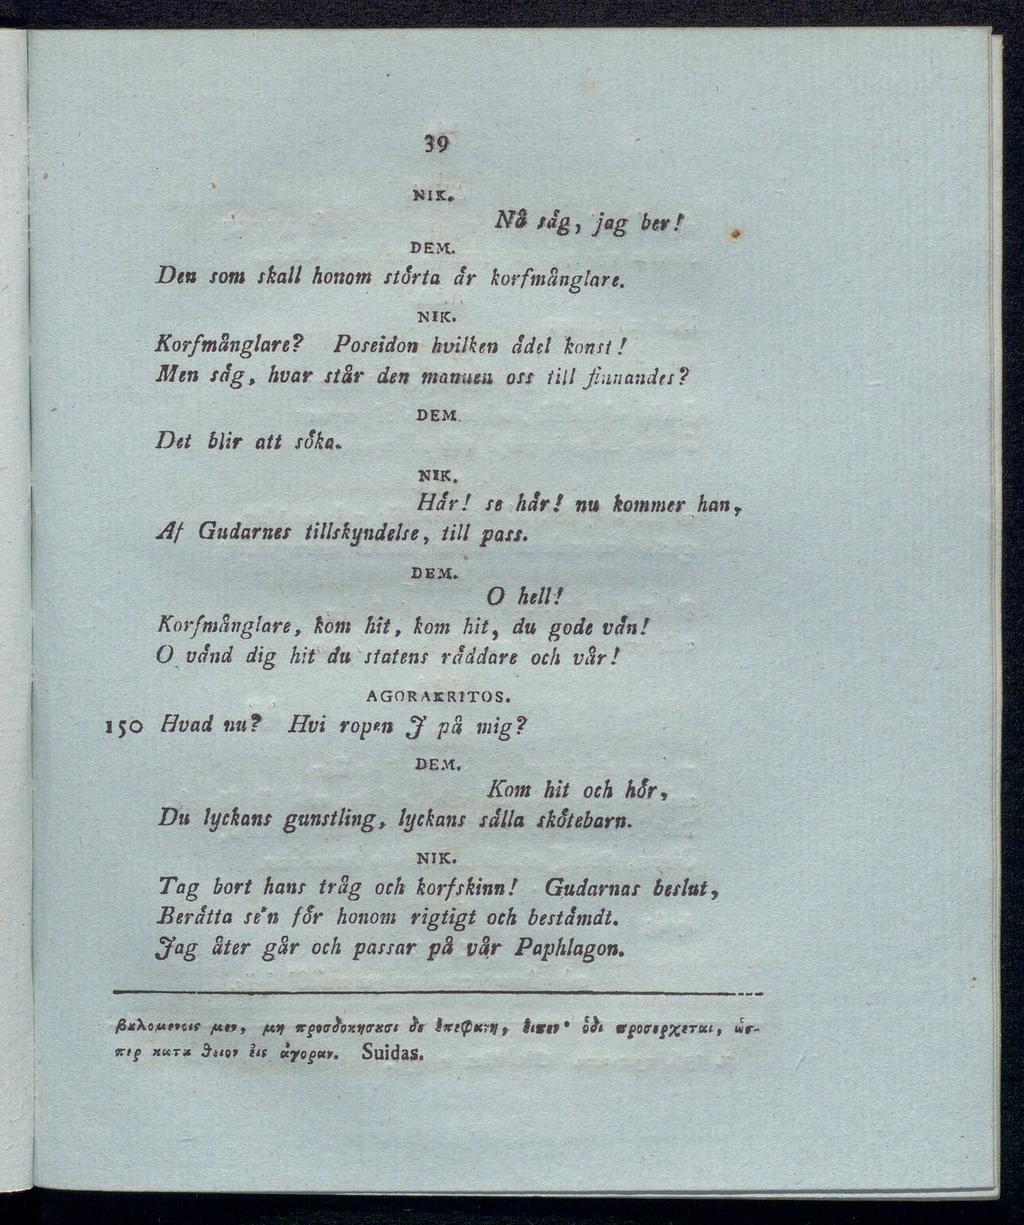 39
NIK.
Nå såg, jag ber!
DEM.
Den som skall honom störta år korfmånglare.
NIK.
Korfmånglare? Poseidon hvilken ådel konst!
Men såg, hvar står den mannen oss till finnandes?
DEM.
Det blir att söka.
NIK.
Hår! se hår! nu kommer han,
Af Gudarnes tillskyndelse, till pass.
DEM.
O hell!
Korfmånglare, kom hit, kom hit, du gode vån!
O vånd dig hit du statens råddare och vår!
AGORAKRITOS.
150 Hvad nu? Hvi ropen J på mig?
DEM.
Kom hit och hör,
Du lyckans gunstling, lyckans sålla skötebarn.
NIK.
Tag bort hans tråg och korfskinn! Gudarnas beslut,
Beråtta se'n för honom rigtigt och beståmdt.
Jag åter går och passar på vår Paphlagon.
βȣλομενοις μεν, μη προσδοκησασι δε ἐπεφανη, ἐιπεν· ὁδι προσερχεται, ὡσ-
περ κατα θειον ἐις ἀγοραν. Suidas.